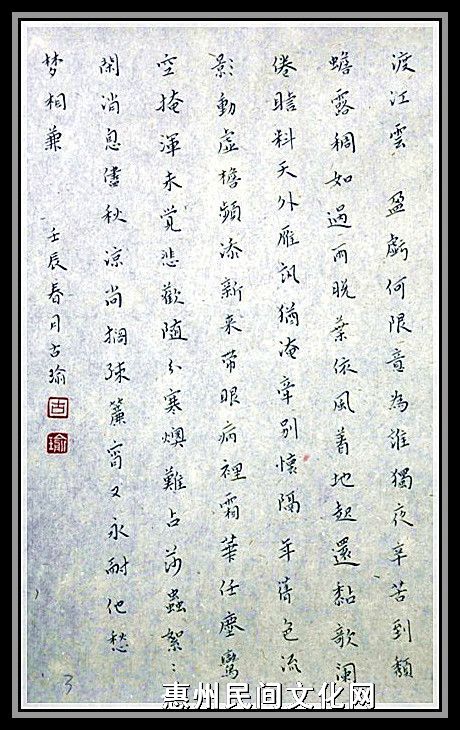 渡江雲 盈虧何限意為誰獨夜辛苦到頹
蟾露稠如過雨晚葉依風著地起還黏歌闌
倦料天外雁訊猶淹牽別懷隔年色流
影動虛檐頻添新来帶眼病裡霜華任塵鸞
空掩渾未覺悲歡隨分寒燠難占莎蟲絮〻
閑消息儘秋涼尚疎簾宵又永耐他愁
梦相兼
壬辰春月古瑜
古
瑜
3
惠州民间文化网